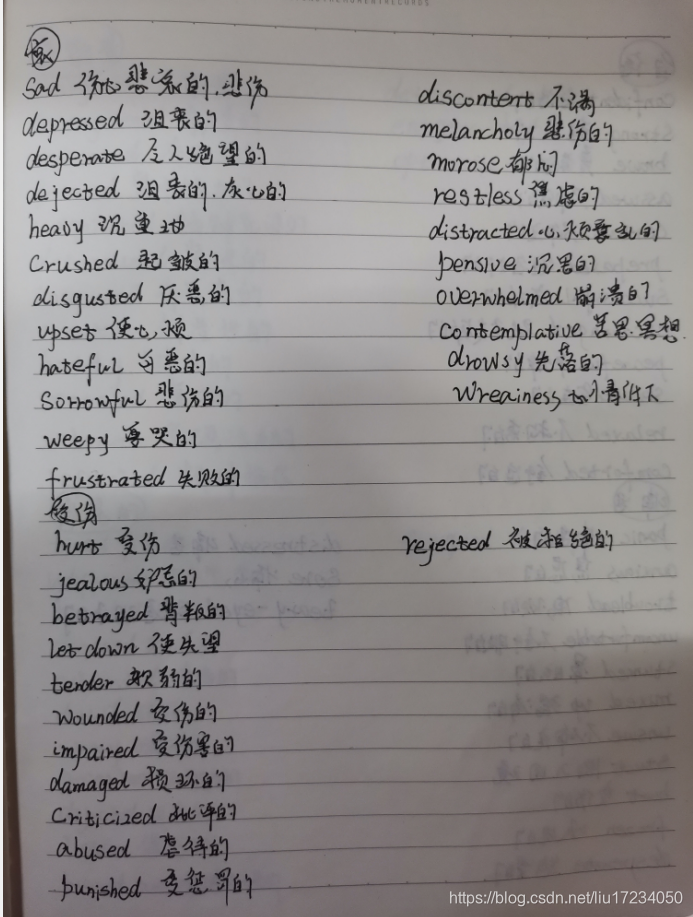 哀
sad 伤心 悲哀的.悲伤
depressed 沮丧的
desperate 令人绝望的
dejected 沮丧的.灰心的
heavy 沉重地
Crushed 起皱的
disgusted 厌恶的
upset 使心烦
hateful 可恶的
Sorrowful 悲伤的
weepy 要哭的
frustrated 失败的
discontent 不满
melancholy 悲伤的
morose 郁闷
restless 焦虑的
distracted 心烦意乱的
pensive 沉思的
overwhelmed 崩溃的
Contemplative 苦思冥想
drowsy 失落的
Wreainess
受伤
hurt 受伤
jealous 妒忌的
betrayed 背叛的
let down 使失望
tender 软弱的
Wounded 受伤的
impaired 受伤害的
damaged 损坏的
Criticized 批评的
abused 虐待的
punished 受惩罚的
rejected 被拒绝的
https://blog.csdn.net/liu17234050